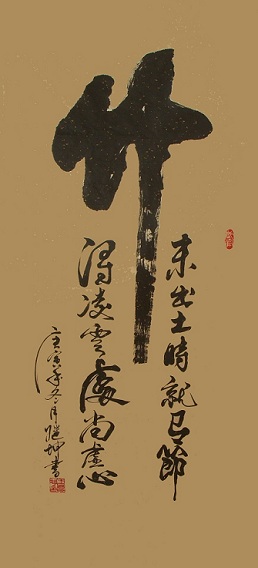 竹
未出土時就已節
得凌雲處尚虚心
庚寅年冬月继坤書